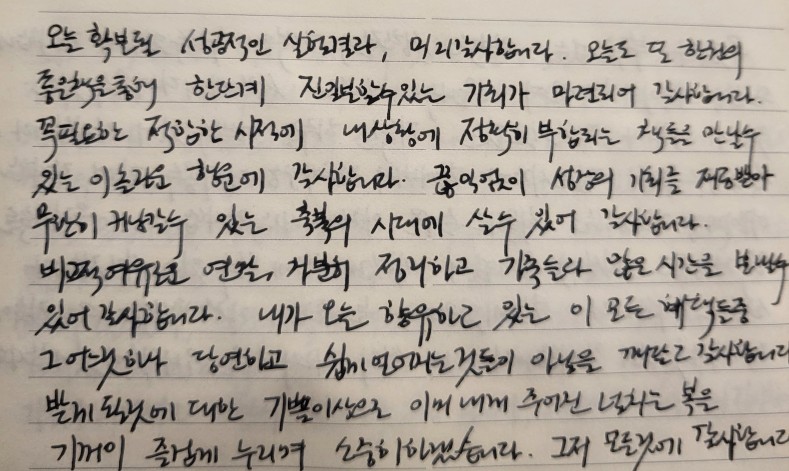 오늘 확보될 성공적인 실험결과, 미리감사합니다. 오늘도 또 한권의
좋은책을통해 한단계 진일보할수있는 기회가 마련되어 감사합니다.
꼭필요한 적합한 시점에 내상황에 정확히 부합되는 책들을 만날수
있는 이 놀라운 행운에 감사합니다. 끊임없이 성장의 기회를 제공받아
무한히 커나갈수 있는 축복의 시대에 살수 있어 감사합니다.
비교적여유로운 연말, 차분히 정리하고 가족들과 많은 시간을 보낼수
있어 감사합니다. 내가 오늘 향유하고 있는 이 모든 혜택들중
그 어느것하나 당연하고 쉽게 얻어지는것들이 아님을 깨닫고 감사합니다
받게 될것에 대한 기쁨이상으로 이미 내게 주어진 넘치는 복을
기꺼이 즐겁게 누리며 소중히하겠습니다. 그저 모든것에 감사합니다